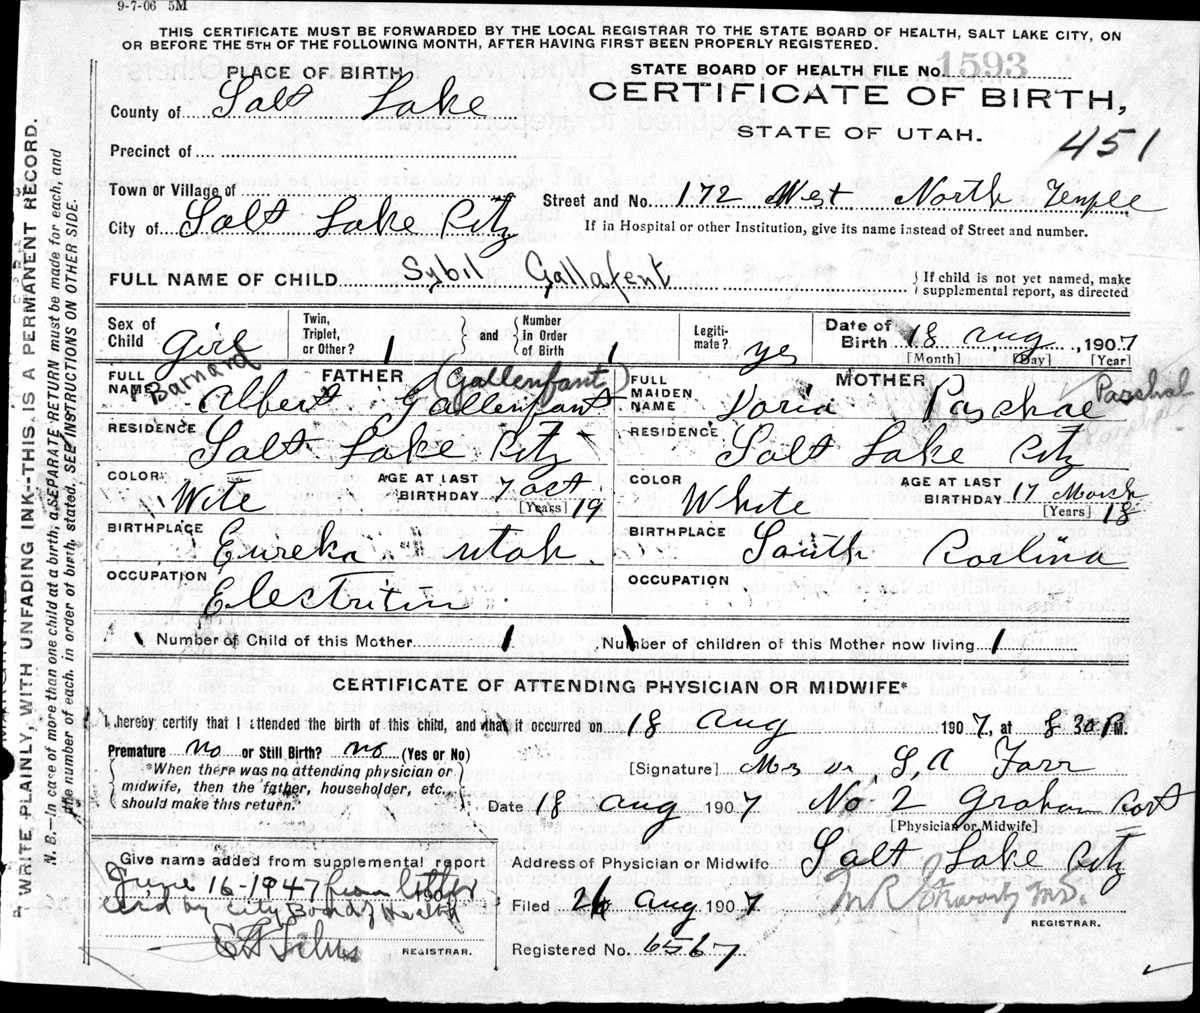 9-7-06 5M
THIS CERTIFICATE MUST BE FORWARDED BY THE LOCAL REGISTRAR TO THE STATE BOARD OF HEALTH, SALT LAKE CITY, ON
OR BEFORE THE 5TH OF THE FOLLOWING MONTH, AFTER HAVING FIRST BEEN PROPERLY REGISTERED.
PLACE OF BIRTH
STATE BOARD OF HEALTH FILE No. 1593
County of Salt Lake
CERTIFICATE OF BIRTH,
STATE OF UTAH.
451
Precinct of
Town or Village of
Street and No. 172 West North Temple
City of Salt Lake City
If in Hospital or other Institution, give its name instead of Street and number.
FULL NAME OF CHILD Sybil Gallafent
If child is not yet named, make
supplemental report, as directed
Sex of Child Girl
Twin, Triplet, or Other? 1
and Number in Order of Birth 1
Legiti-mate? yes
Date of Birth 18 Aug, 1907
[Month] [Day] [Year]
FATHER
FULL NAME Barnard Albert Gallenfant (Gallenfant)
MOTHER
FULL MAIDEN NAME Doria Paschae Parshal
RESIDENCE Salt Lake City
RESIDENCE Salt Lake City
COLOR Wite
AGE AT LAST BIRTHDAY 7 Oct 19
[Years]
COLOR White
AGE AT LAST BIRTHDAY 17 March 18
[Years]
BIRTHPLACE Eureka Utah.
BIRTHPLACE South Carlina
OCCUPATION Electritin
OCCUPATION
Number of Child of this Mother 1
Number of children of this Mother now living 1
CERTIFICATE OF ATTENDING PHYSICIAN OR MIDWIFE*
I hereby certify that I attended the birth of this child, and that it occurred on 18 Aug 1907, at 8 30 P.M.
Premature no or Still Birth? no (Yes or No)
*When there was no attending physician or
midwife, then the father, householder, etc.,
should make this return.
[Signature] Mrs Dr. S. A Farr
Date 18 Aug 1907 No 2 Graham Cort
[Physician or Midwife]
Give name added from supplemental report
Address of Physician or Midwife Salt Lake City
June 16-1947 from letter
190
card by City Board of Health
Filed 26 Aug 1907
M.D.
REGISTRAR.
REGISTRAR.
Registered No. 6567
WRITE PLAINLY, WITH UNFADING INK--THIS IS A PERMANENT RECORD.
N. B.—In case of more than one child at a birth, a SEPARATE RETURN must be made for each, and
the number of each, in order of birth, stated. SEE INSTRUCTIONS ON OTHER SIDE.